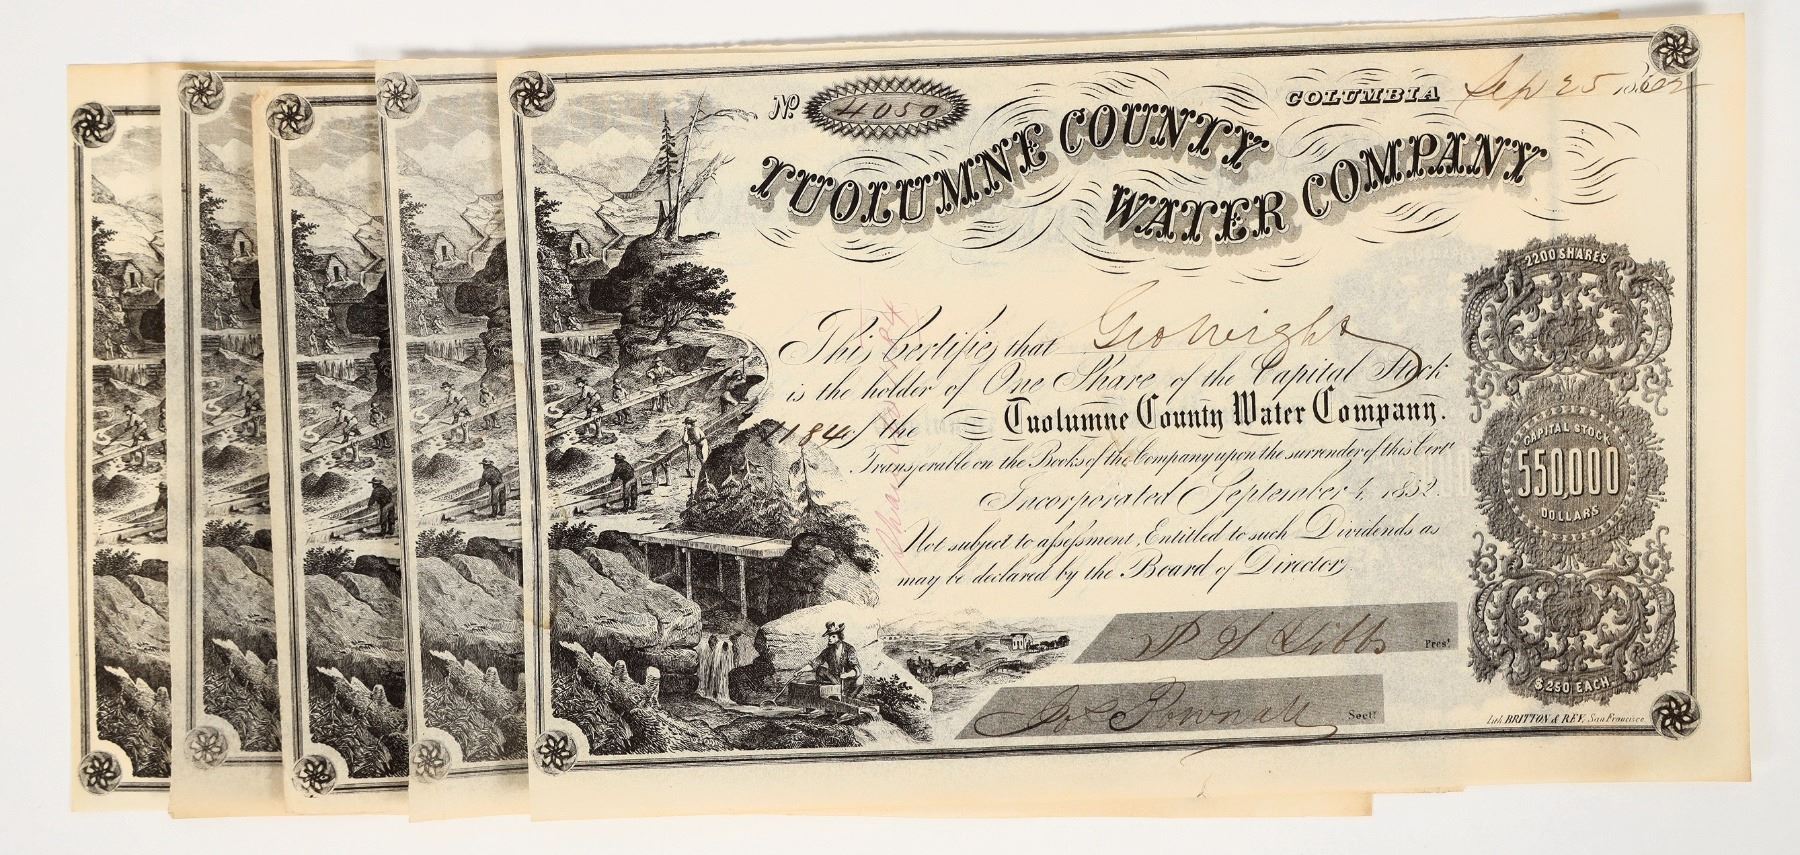 No. 4050
COLUMBIA Sep 25 1862
TUOLUMNE COUNTY
WATER COMPANY
This Certifies that Geo Wright
is the holder of One Share of the Capital Stock
1184 of the Tuolumne County Water Company.
Transferable on the Books of the Company upon the surrender of this Cert.
Incorporated September 4, 1852.
Not subject to assessment, Entitled to such Dividends as
may be declared by the Board of Directors.
Pres't
Jos Pownall Sect'y
2200 SHARES
CAPITAL STOCK
550,000
DOLLARS
$250 EACH
Lith. BRITTON & REY, San Francisco.